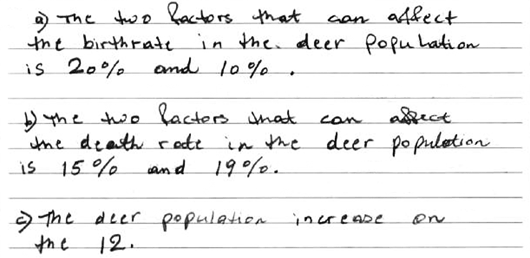 a) The two factors that can affect
the birthrate in the deer population
is 20% and 10%.
b) The two factors that can affect
the death rate in the deer population
is 15% and 19%.
c) The deer population increase on
the 12.